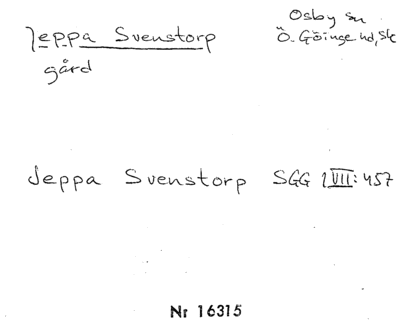 Jeppa Svenstorp
gård
Osby sn
Ö. Göinge hd, Sk
Jeppa Svenstorp SGG 1 VII: 457
Nr 16315